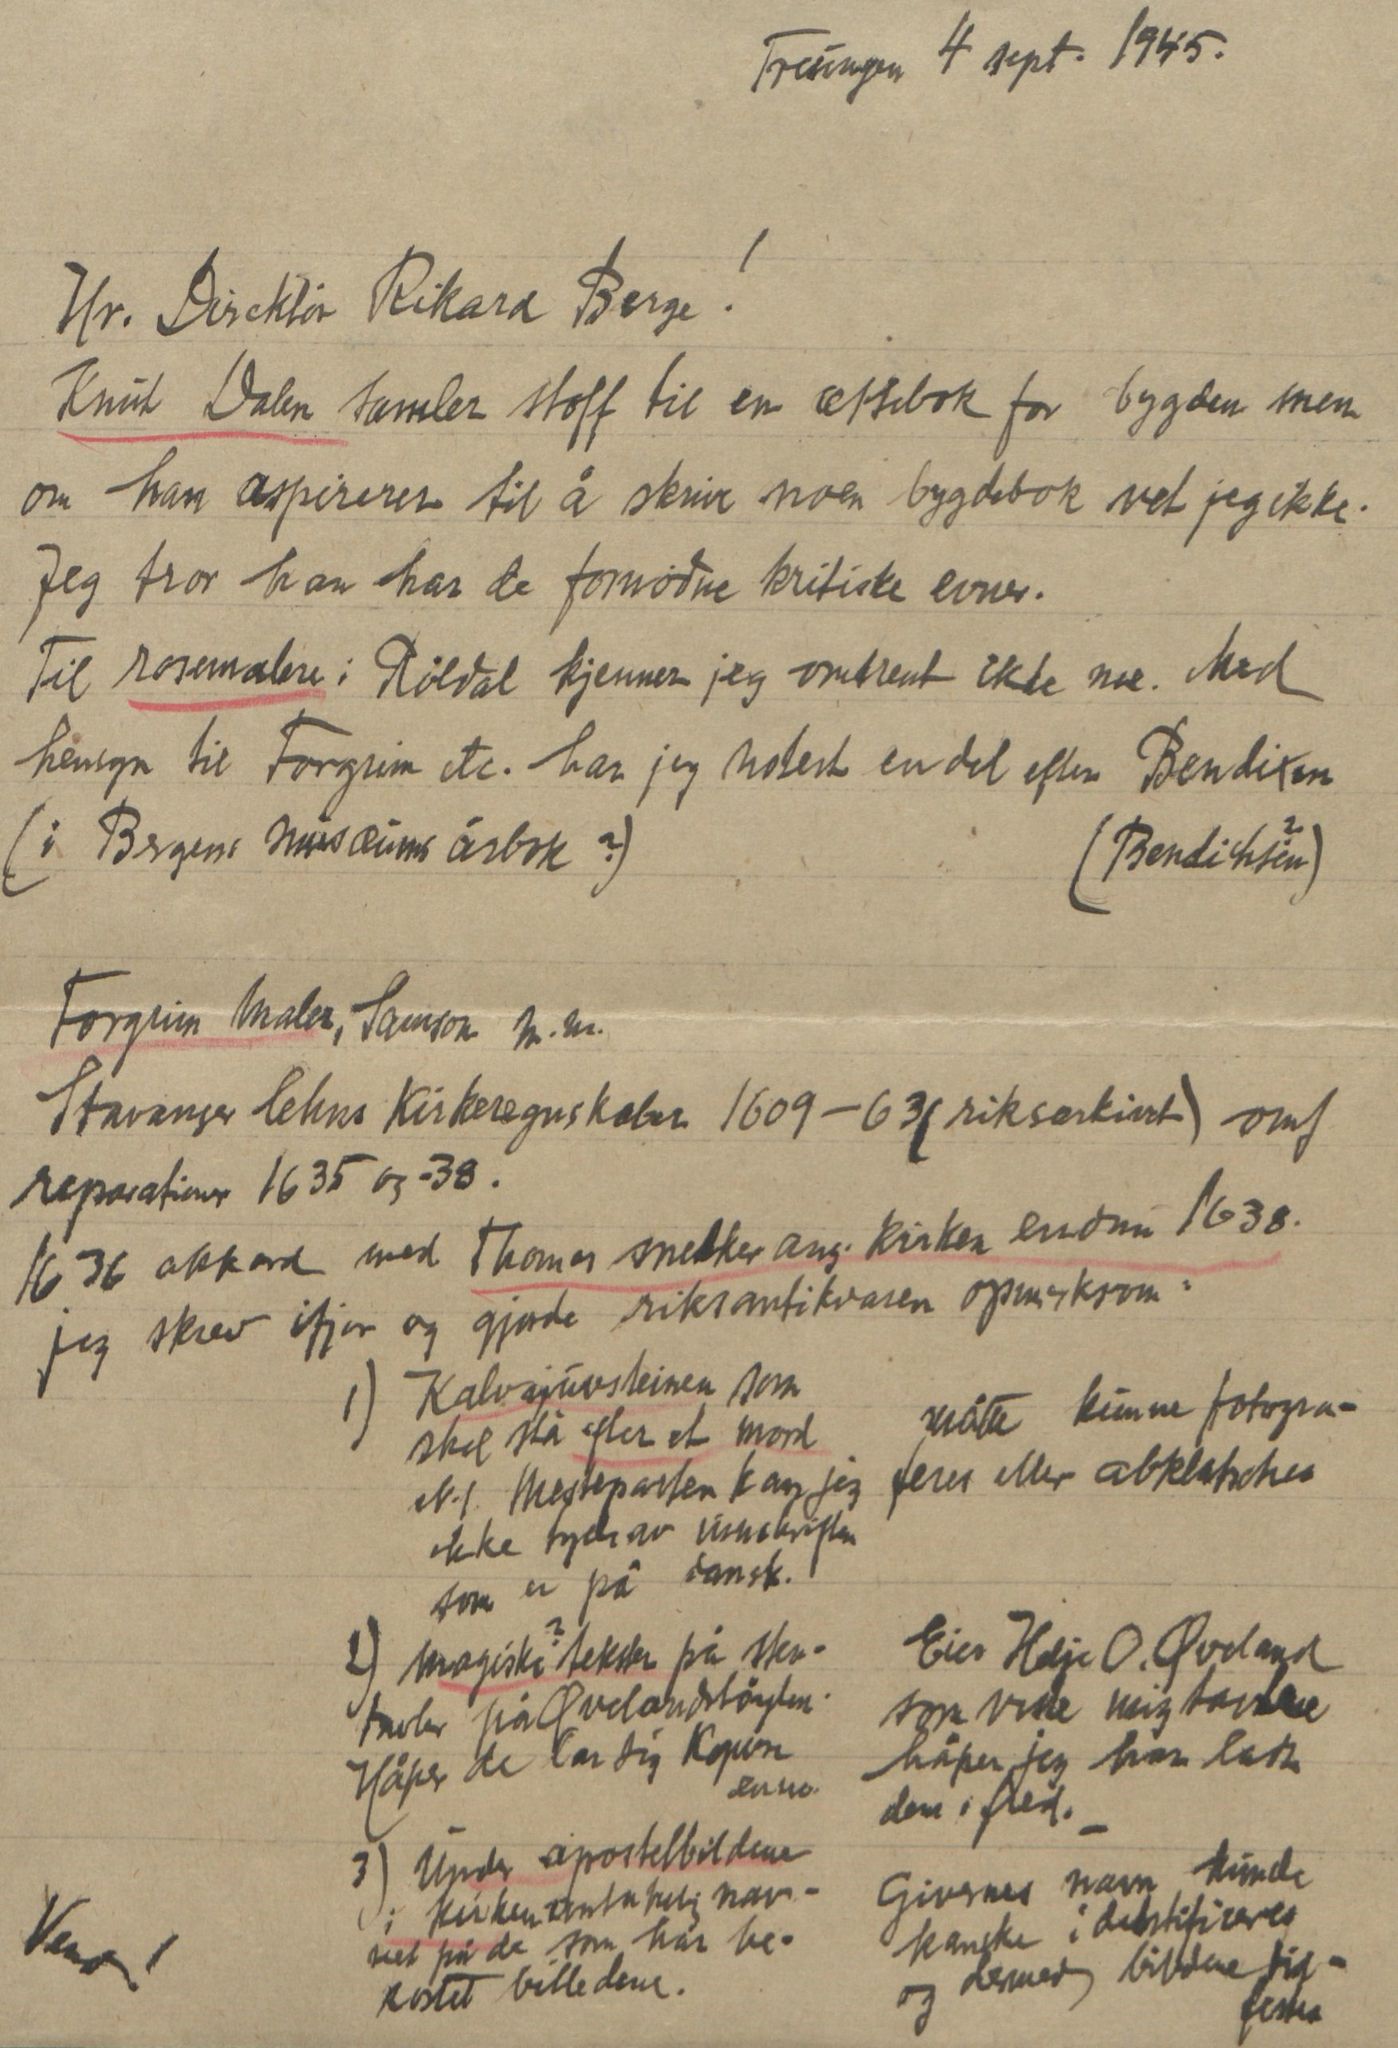 Treungen 4 sept. 1945.
Hr. Direktör Rikard Berge!
Knut Dalen samler stoff til en ættebok for bygden men
om han aspirerer til å skrive noen bygdebok vet jeg ikke.
Jeg tror han har de fornödne kritiske evner.
Til rosemalere i Röldal kjenner jeg omtrent ikke noe. Med
hensyn til Torgrim etc. har jeg notert en del efter Bendixen
(i Bergens museums årbok?) (Bendichsen?)
Torgrim maler, Samson m.m.
Stavanger lehns Kirkeregnskaber 1609-63 (riksarkivet) omf
reparationer 1635 og -38.
1636 akkord med Thomas snekker ang. kirken endnu 1638.
jeg skrev ifjor og gjorde riksantikvaren opmerksom:
1) Kalvajuvsteinen som
skal stå efter et mord
Mesteparten kan jeg
ikke tyde av innskriften
som er på dansk.
måtte kunne fotogra-
feres eller abklatsches
2) magiske? tekster på sten-
tavler på Øvelandstöylen.
Håper de lar sig kopiere
ennu.
Eier Helje O. Øveland
som viste mig tavlene
håper jeg har latt
dem i fred. _
3) Under apostelbildene
i kirken antakelig nav-
net på de som har be-
kostet billedene.
Givernes navn kunde
kanske identifiseres
og dermed bildene tid-
festes
Vend!